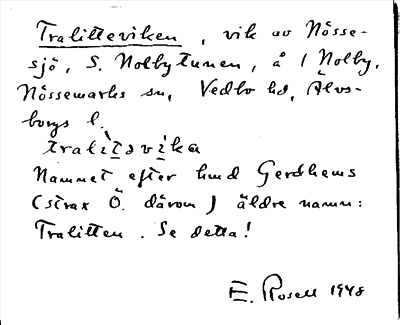 Tralitteviken, vik av Nösse-
sjö, S. Nolbytunen, å 1 Nolby,
Nössemarks sn, Vedbo hd, Älvs-
borgs l.
tralìtəvika
Namnet efter hmd Gerdhems
(strax Ö. därom) äldre namn:
Tralitten. Se detta!
E. Rosell 1948